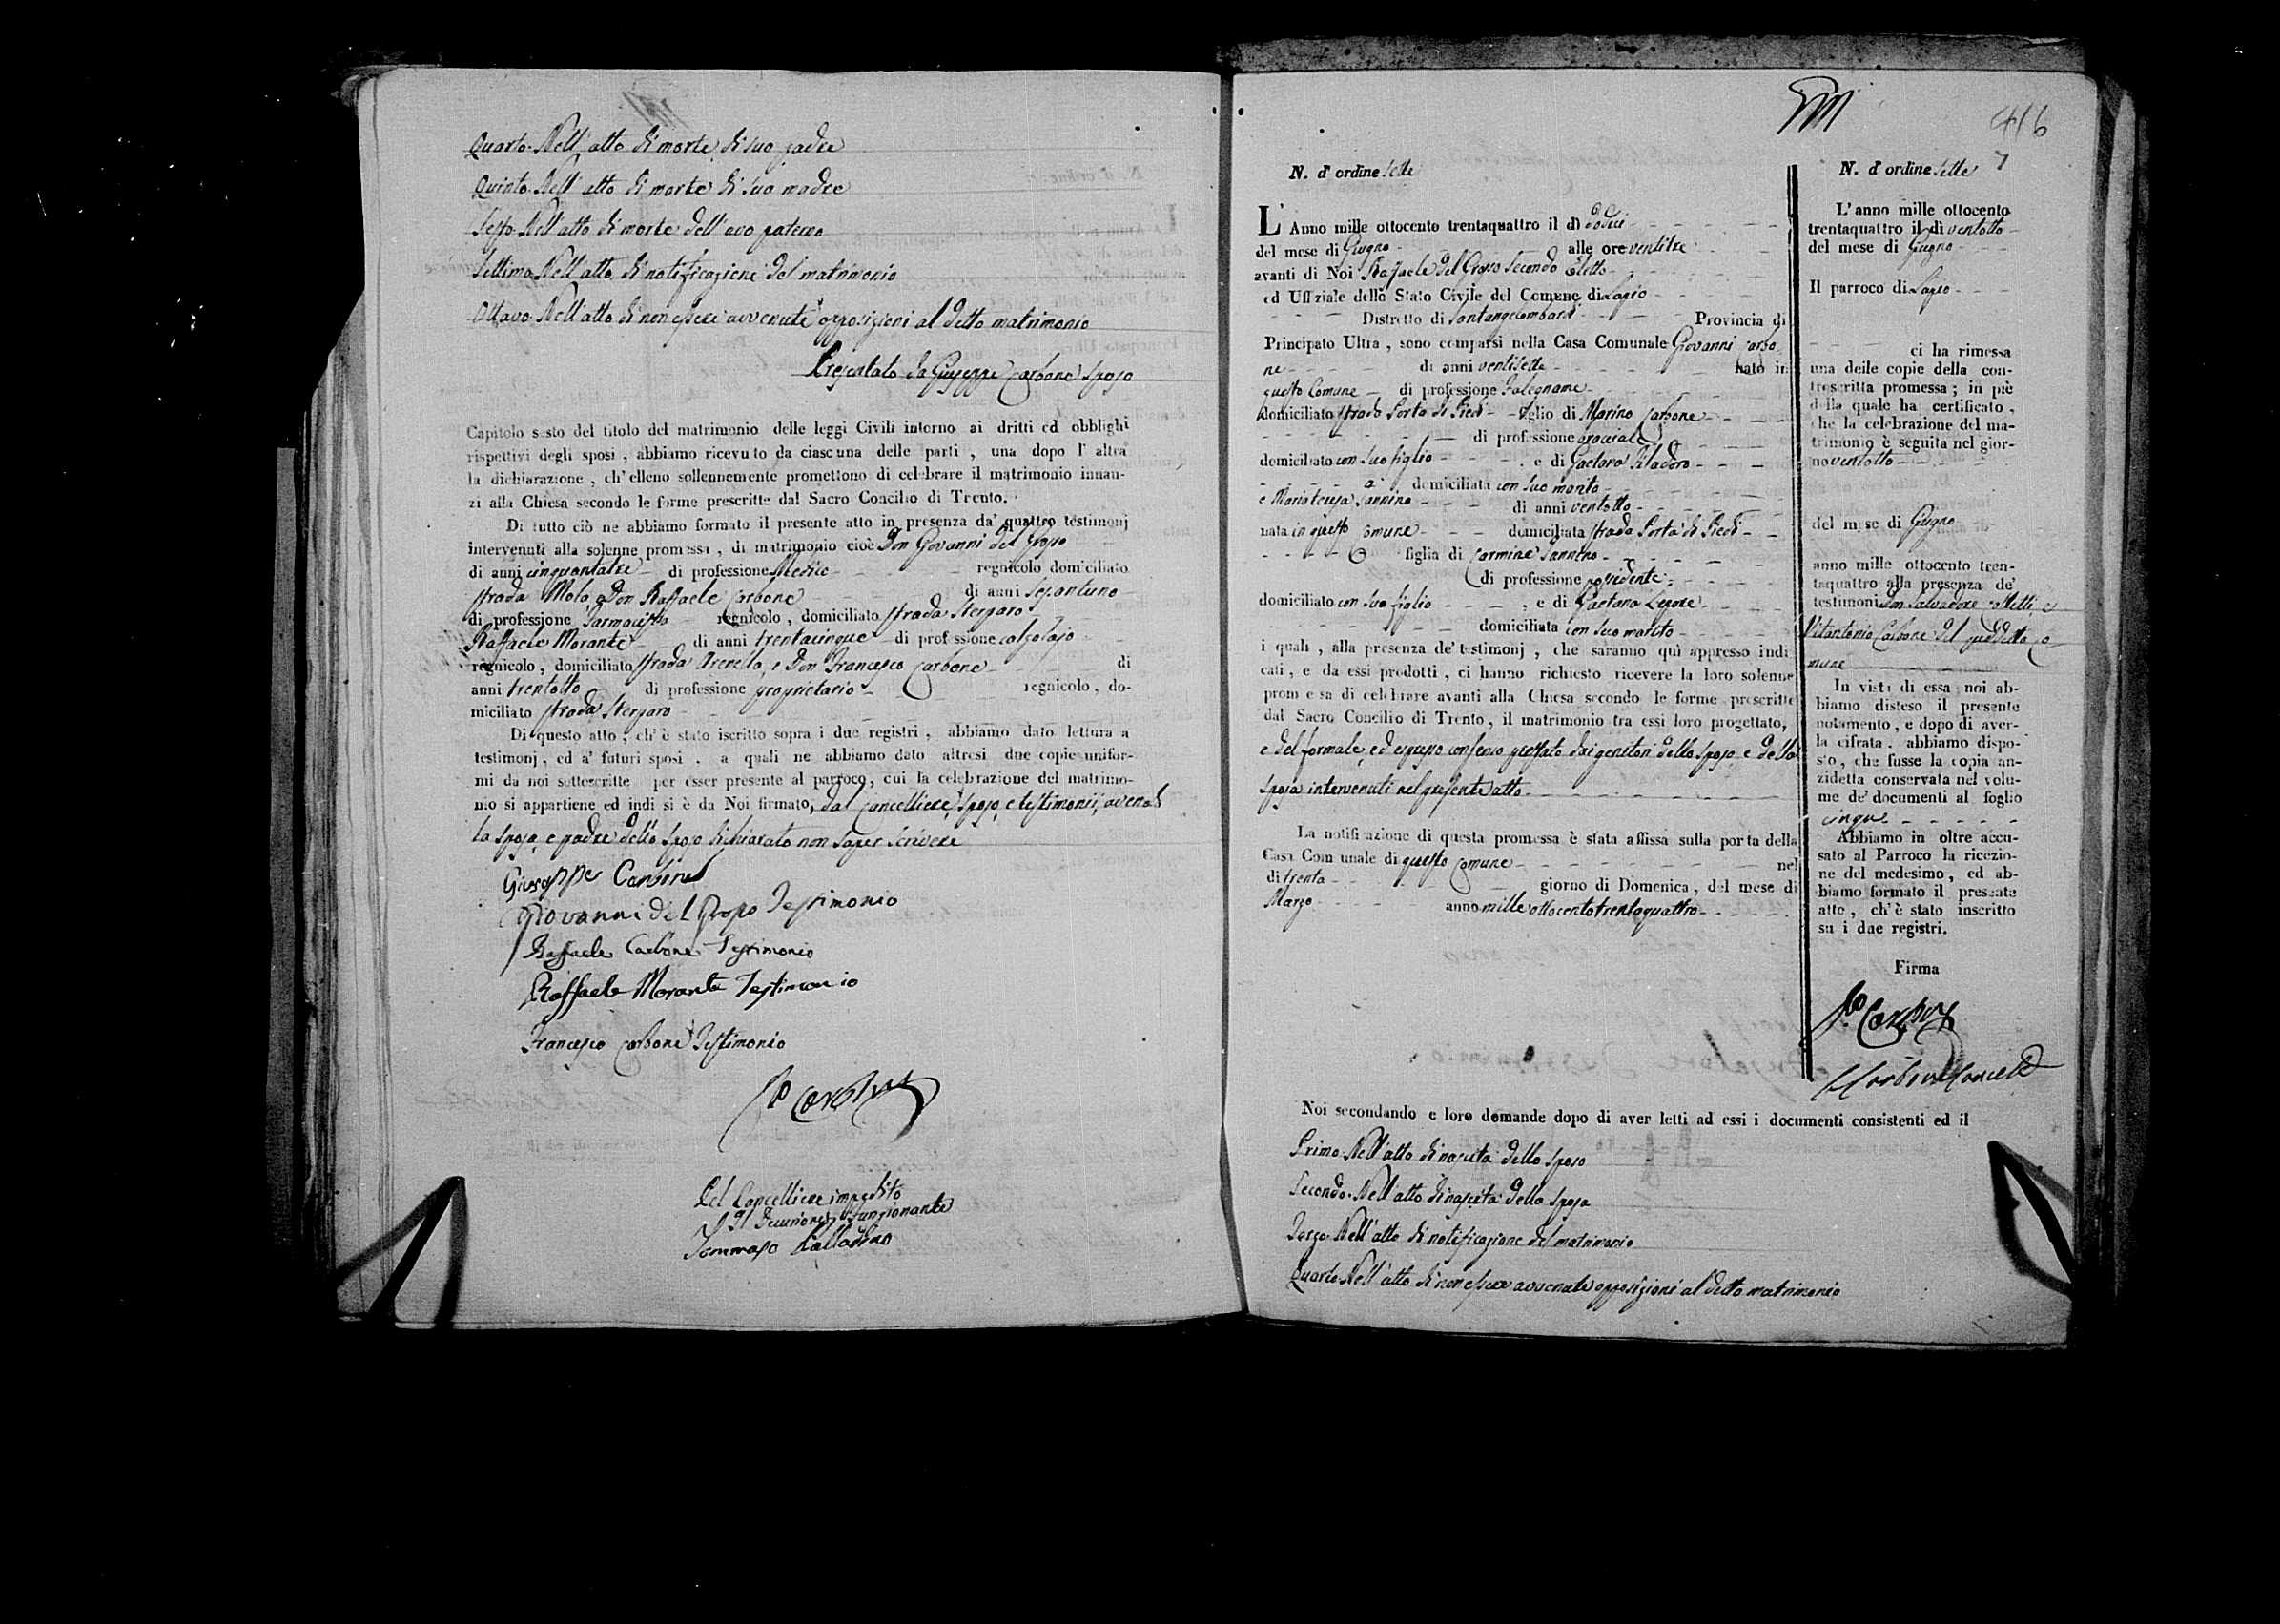 Quarto. Nell'atto di morte di suo padre
Quinto. Nell'atto di morte di sua madre
Sesto. Nell'atto di morte dell'avo paterno
Settimo. Nell'atto di notificazione del matrimonio
Ottavo. Nell'atto di non essere avvenute opposizioni al detto matrimonio
Presentato da Giuseppe Carbone sposo
Capitolo sesto del titolo del matrimonio delle leggi Civili intorno ai dritti ed obblighi
rispettivi degli sposi, abbiamo ricevuto da ciascuna delle parti, una dopo l'altra
la dichiarazione, ch'elleno sollennemente promettono di celebrare il matrimonio innan-
zi alla Chiesa secondo le forme prescritte dal Sacro Concilio di Trento.
Di tutto ciò ne abbiamo formato il presente atto in presenza da' quattro testimonj
intervenuti alla solenne promessa, di matrimonio cioè Don Giovanni del Grosso
di anni cinquantatre di professione Medico regnicolo domiciliato
strada Mola, Don Raffaele Carbone di anni
di professione Farmacista regnicolo, domiciliato strada Stergaro
Raffaele Morante di anni trentacinque di professione calzolajo
regnicolo, domiciliato strada Arenella, e Don Francesco Carbone di
anni trentotto di professione proprietario regnicolo, do-
miciliato strada Stergaro
Di questo atto, ch'è stato iscritto sopra i due registri, abbiamo dato lettura a
testimonj, ed a' futuri sposi, a quali ne abbiamo dato altresi due copie unifor-
mi da noi sottoscritte per esser presente al parroco, cui la celebrazione del matrimo-
nio si appartiene ed indi si è da Noi firmato, dal Cancelliere, sposo, e testimonii, avendo
la sposa, e padre dello sposo dichiarato non saper scrivere
Giuseppe Carbone
Giovanni del Grosso Testimonio
Raffaele Carbone Testimonio
Raffaele Morante Testimonio
Francesco Carbone Testimonio
Pel Cancelliere impedito
Il Decurione Funzionante
Tommaso
416
7
N. d'ordine Sette
L'Anno mille ottocento trentaquattro il dì dodici
del mese di Giugno alle ore ventitre
avanti di Noi Raffaele del Grosso Secondo Eletto
ed Uffiziale dello Stato Civile del Comune di Lapio
Distretto di Santangelombardi Provincia di
Principato Ultra, sono comparsi nella Casa Comunale Giovanni Carbo
ne di anni ventisette nato in
questo Comune di professione Falegname
domiciliato strada Porta di Piedi figlio di Marino Carbone
di professione
domiciliato con suo figlio e di Gaetana
domiciliata con suo marito
e Maria Teresa Iannino di anni ventotto
nata in questo Comune domiciliata strada Porta di Piedi
figlia di Carmine Iannino
di professione possidente
domiciliato con suo figlio, e di Gaetana Lepore
domiciliata con suo marito
i quali, alla presenza de' testimonj, che saranno qui appresso indi
cati, e da essi prodotti, ci hanno richiesto ricevere la loro solenne
promessa di celebrare avanti alla Chiesa secondo le forme prescritte
dal Sacro Concilio di Trento, il matrimonio tra essi loro progettato,
e del formale, ed espresso consenso prestato dai genitori dello sposo, e della
sposa intervenuti nel presente atto
La notificazione di questa promessa è stata affissa sulla porta della
Casa Comunale di questo Comune nel
di trenta giorno di Domenica, del mese di
Marzo anno mille ottocento trentaquattro
N. d'ordine Sette
L'anno mille ottocento
trentaquattro il dì ventotto
del mese di Giugno
Il parroco di Lapio
ci ha rimessa
una delle copie della con-
troscritta promessa; in piè
della quale ha certificato,
che la celebrazione del ma-
trimonio è seguita nel gior-
no ventotto
del mese di Giugno
anno mille ottocento tren-
taquattro alla presenza de'
testimoni Don Salvadore e
Vitantonio Carbone del suddetto Co-
mune
In vista di essa noi ab-
biamo disteso il presente
notamento, e dopo di aver-
la cifrata, abbiamo dispo-
sto, che fusse la copia an-
zidetta conservata nel volu-
me de' documenti al foglio
cinque
Abbiamo in oltre accu-
sato al Parroco la ricezio-
ne del medesimo, ed ab-
biamo formato il presente
atto, ch'è stato inscritto
su i due registri.
Firma
Noi secondando e loro domande dopo di aver letti ad essi i documenti consistenti ed il
Primo. Nell'atto di nascita dello sposo
Secondo. Nell'atto di nascita della sposa
Terzo. Nell'atto di notificazione del matrimonio
Quarto. Nell'atto di non essere avvenute opposizioni al detto matrimonio